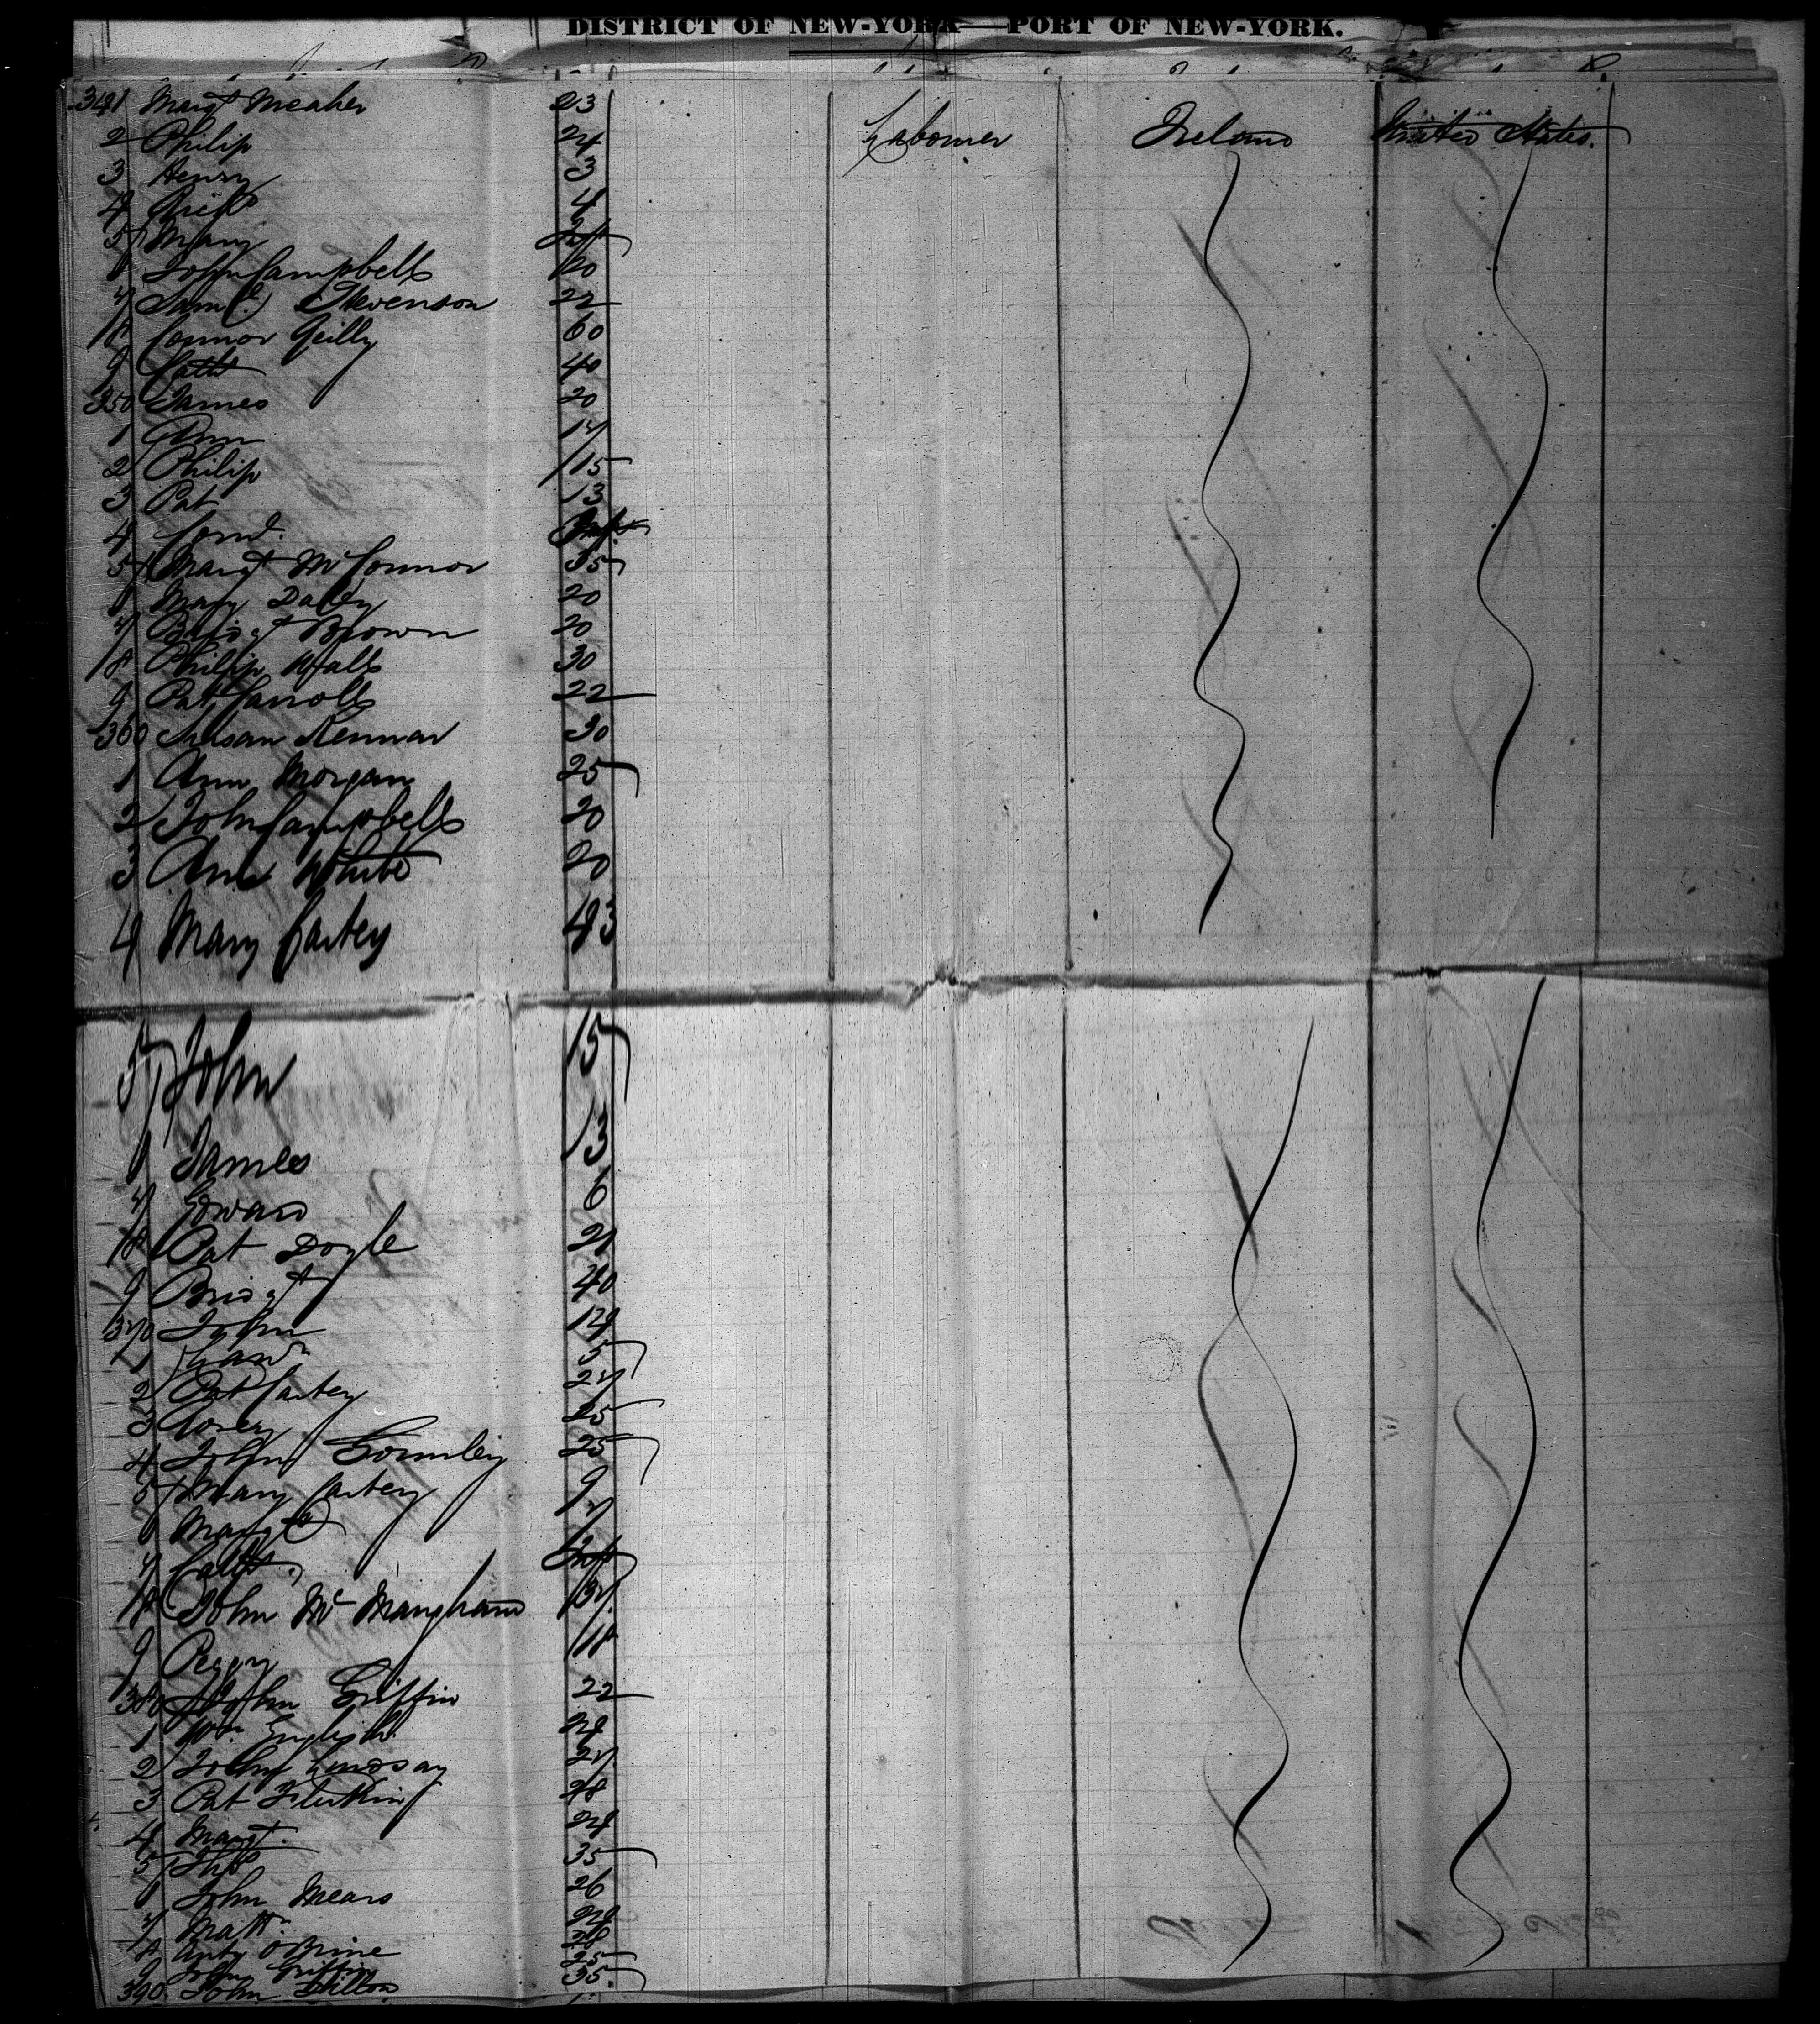 DISTRICT OF NEW-YORK—PORT OF NEW-YORK.
341 Margt Meaher 23
2 Philip 24 Labourer Ireland United States.
3 Henry 3
4 4
5 Mary Inft
6 John Campbell 20
7 Saml. Stevenson 22
8 Connor Reilly 60
9 Cath 40
350 James 20
1 Ann 17
2 Philip 15
3 Pat 13
4 Inft
5 Margt McConnor 35
6 Mary Daley 20
7 Bridgt Brown 20
8 Philip Wall 30
9 Pat Carroll 22
360 Susan Kernan 30
1 Ann Morgan 25
2 John Campbell 20
3 Ann White 20
4 Mary Cartey 43
5 John 15
6 James 13
7 Edward 6
8 Pat Doyle 21
9 Bridgt 40
370 John 14
1 5
2 Pat Cartey 27
3 25
4 John Gormley 25
5 Mary Cartey 9
6 Margt 7
7 Cath Inft
8 John Mc 37
9 Peggy 18
380 John Griffin 22
1 Wm. English 24
2 John Lindsay 27
3 Pat 28
4 Margt. 24
5 35
6 John Mears 26
7 Matt. 24
8 Anty OBrine 28
9 John Griffin 25
390 John Dillon 35.